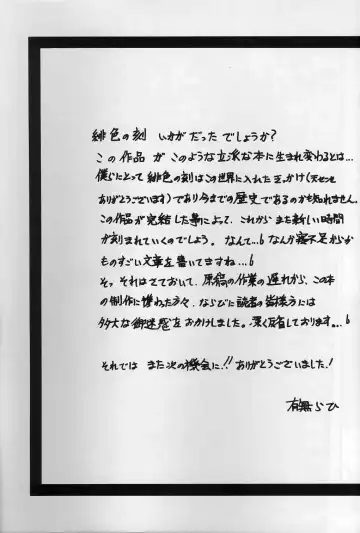 緋色の刻 いかがだったでしょうか?
この作品がこのような立派な本に生まれ変わるとは…
僕らにとって緋色の刻はこの世界に入れたきっかけ(天せンセ
ありがとうございます)であり今までの歴史であるのかも知れません。
この作品が完結した事によって、これからまた新しい時間
が刻まれていくのでしょう。なんて…6なんか寝不足からか
ものすごい文章を書いてますね…6
そっそれはさておいて、原稿の作業の遅れから、この本
の制作に携わった方々、ならびに読者の皆様方には
多大な御迷惑をおかけしました。深く反省しております…6
それでは また次の機会に!!ありがとうございました!
有無らひ